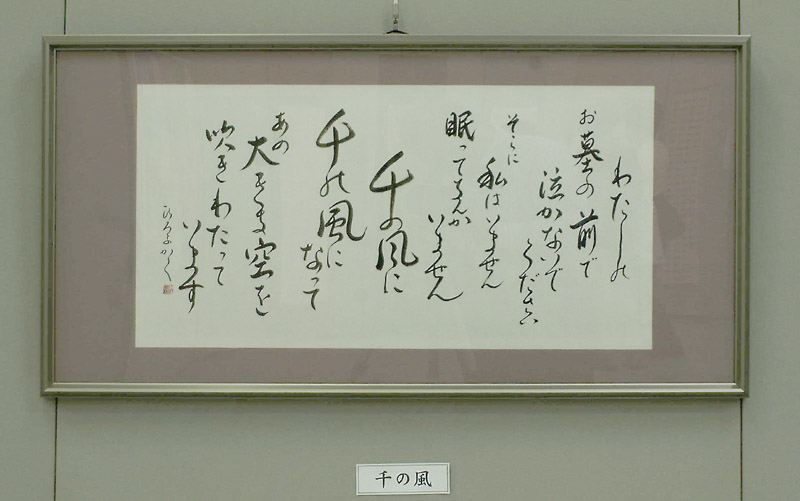 わたしの
お墓の前で
泣かないで
ください
そこに
私はいません
眠ってなんか
いません
千の風に
千の風に
なって
あの
大きな空を
吹きわたって
います
千の風